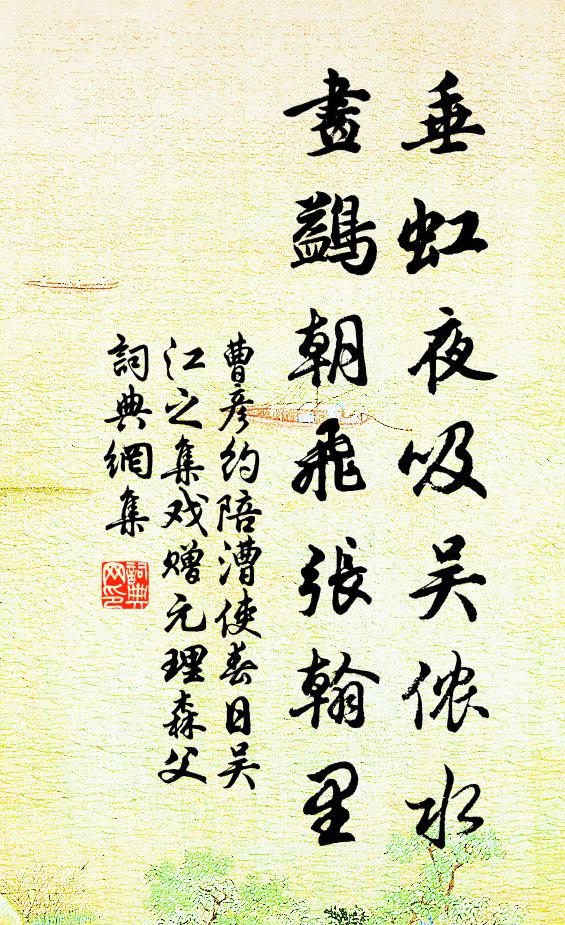 垂虹夜吸吴侬水
畫鷁朝飛張翰里
曹彦約陪漕使春日吴
江之集戏赠元理森父
詞典網集
詞典网印